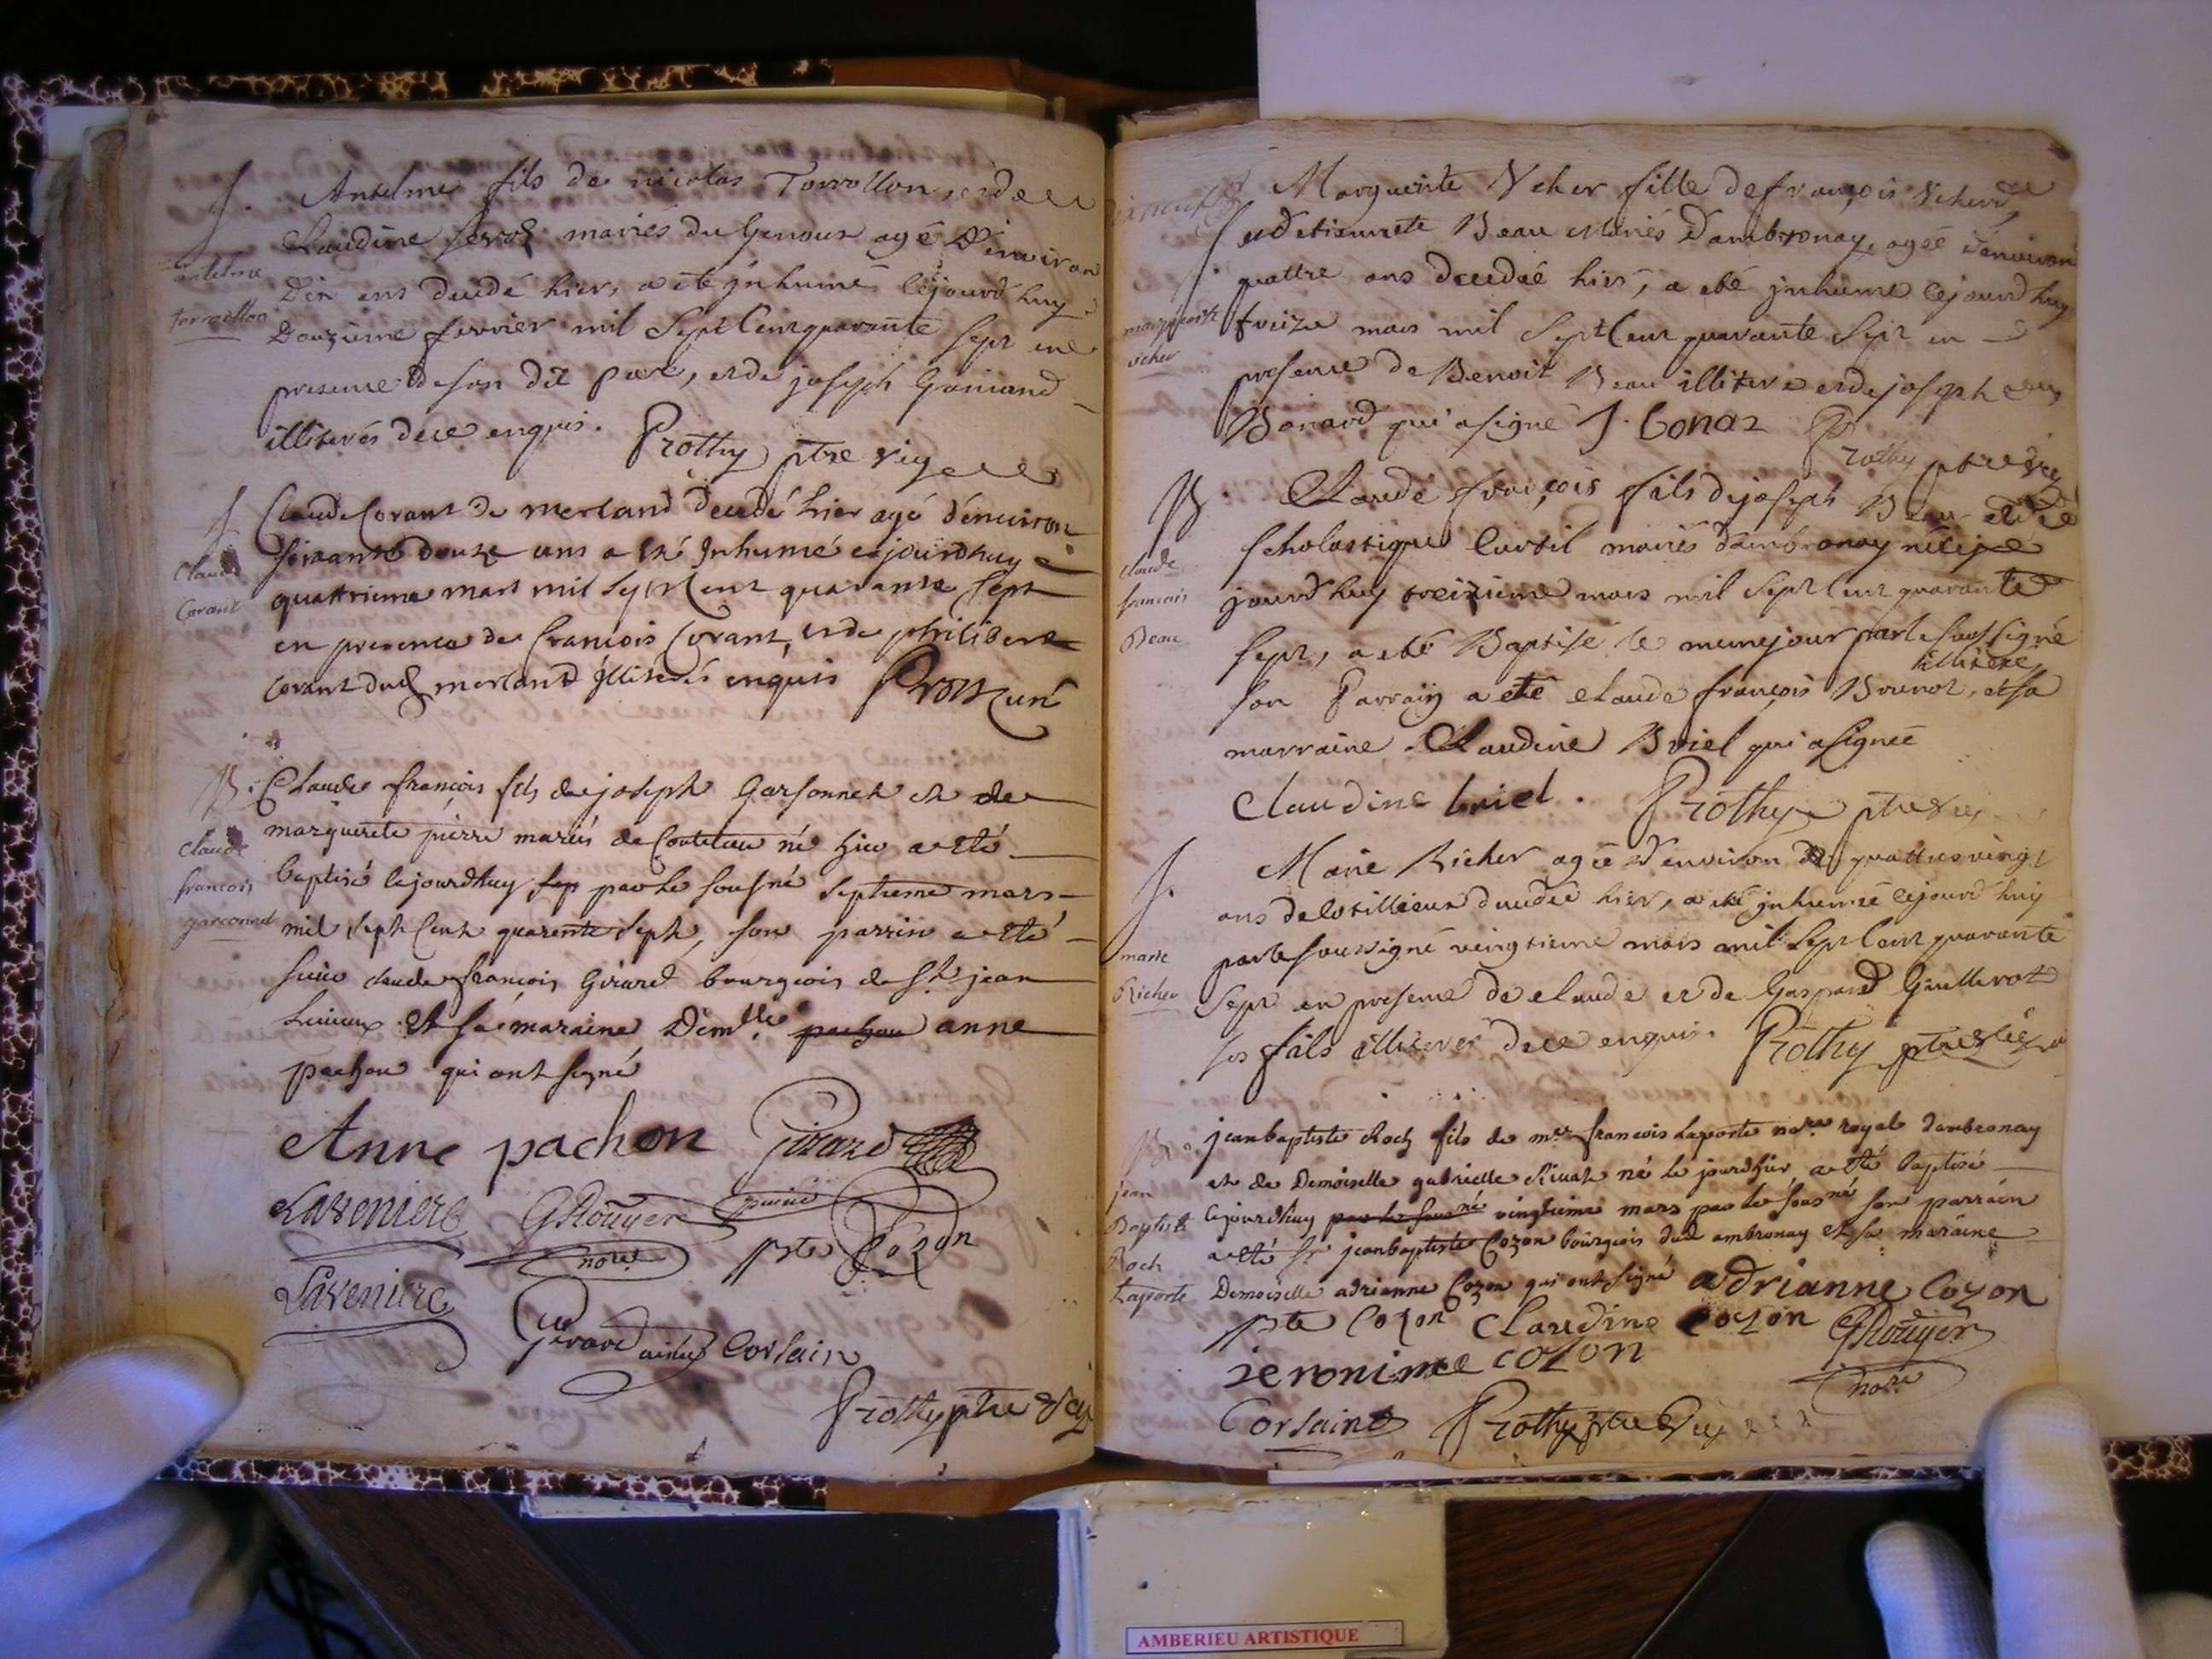 J. Anselme fils de nicolas Torrollon, et de
Claudine mariés du Genoux agé D'environ
anselme
torrollon
Dix ans decedé hier, a eté jnhumé cejourd'huy
Douzieme fevrier mil Sept Cent quarante sept en
presence de son dit pere, et de joseph Goniand
illiterés de ce enquis. Prothy ptre vic
J Claude Corant de merland decedé hier agé d'environ
Claude
Corant
soixante douze ans a été Jnhumé cejourdhuy
quattrieme mars mil Sept Cent quarante sept
en presence de francois Corant, et de philibert
Corant dud merland jlliterés enquis Prost curé
B. Claude françois fils de joseph Garsonnet et de
marguerite pierre mariés de Coutelieu né hier a eté
Claude
francois
garconnet
baptisé cejourdhuy sep par le sousné septieme mars
mil sept Cent quarente sept, son parrin a eté
sieur claude françois Girard bourgeois de St jean
le vieux et sa maraine Demlle pachon anne
pachon qui ont signé
Anne pachon Girard
Laveniere GRouyer puiné
nore. pte Cozon
Laveniere
Girard ainé Corsain
Prothy ptre vic
J Marguerite Vcher fille de françois Vcher
et d'etiennete Beau Mariés d'ambronay agée d'environ
quattre ans decedée hier, a eté jnhumé cejourd huy
marguerite
vcher
treize mars mil Sept Cent quarante Sept en
presence de Benoit Beau illiteré et de joseph
Bonard qui a signé J. bonaz Prothy ptre vic
B. Claude françois fils de joseph Beau et de
scholastique Curtil mariés d'ambronay né ce
claude
francois
Beau
jourd'huy treizieme mars mil Sept Cent quarante
sept, a eté Baptisé le meme jour par le soussigné
illiteré
son Parrain a eté claude françois Brunot, et sa
marraine Claudine Briel qui a signée
Claudine briel. Prothy ptre vic
J. Marie Richer agée d'environ quattrevingt
ans decedée hier, a eté jnhumée cejourd'huy
marie
Richer
par le soussigné vingtieme mars mil Sept Cent quarante
Sept en presence de claude et de Gaspard Guillerot
ses fils illiterés de ce enquis. Prothy ptre vic
B. jean baptiste Roch fils de mre francois Laporte nore royal d'ambronay
et de Demoiselle gabrielle Rivat né le jourdhier a eté baptisé
jean
Baptiste
Roch
Laporte
cejourdhuy par le sousné vingtieme mars par le sousné son parrain
a eté Sr jeanbaptiste Cozon bourgeois dud ambronay et sa maraine
Demoiselle adrianne Cozon qui ont signé adrianne Cozon
pte Cozon Claudine cozon GRouyer
jeronime cozon nore
Corsaine Prothy ptre Vic
AMBERIEU ARTISTIQUE